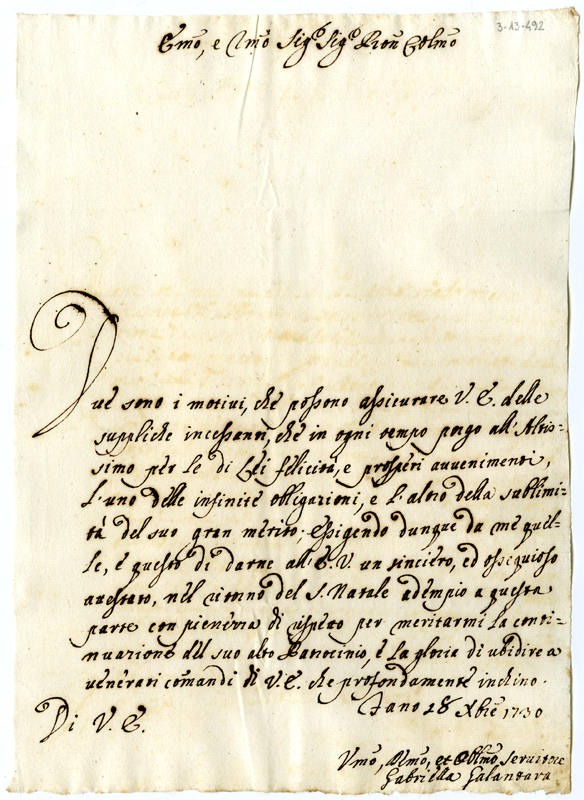 3-13-492
Emo, e Rmo Sigr Sigr Pron Colmo
Due sono i motivi, che possono assicurare V. E. delle
suppliche incessanti, che in ogni tempo porgo all'Altis=
simo per le di Lei felicità, e prosperi avvenimenti,
L'uno delle infinite obligazioni, e l'altro della sublimi=
tà del suo gran merito; esigendo dunque da me quel=
le, e questo di darne all'E.V. un sinciero, ed ossequioso
attestato, nel ritorno del S. Natale adempio a questa
parte con pienezza di rispetto per meritarmi la conti=
nuazione del suo alto Patrocinio, e la gloria di ubidire a
venerati comandi di V. E. che profondamente inchino.
Di V. E.
Fano 18 Xbre 1730
Vmo, Dmo, et Oblmo Servitore
Gabriella Galantara